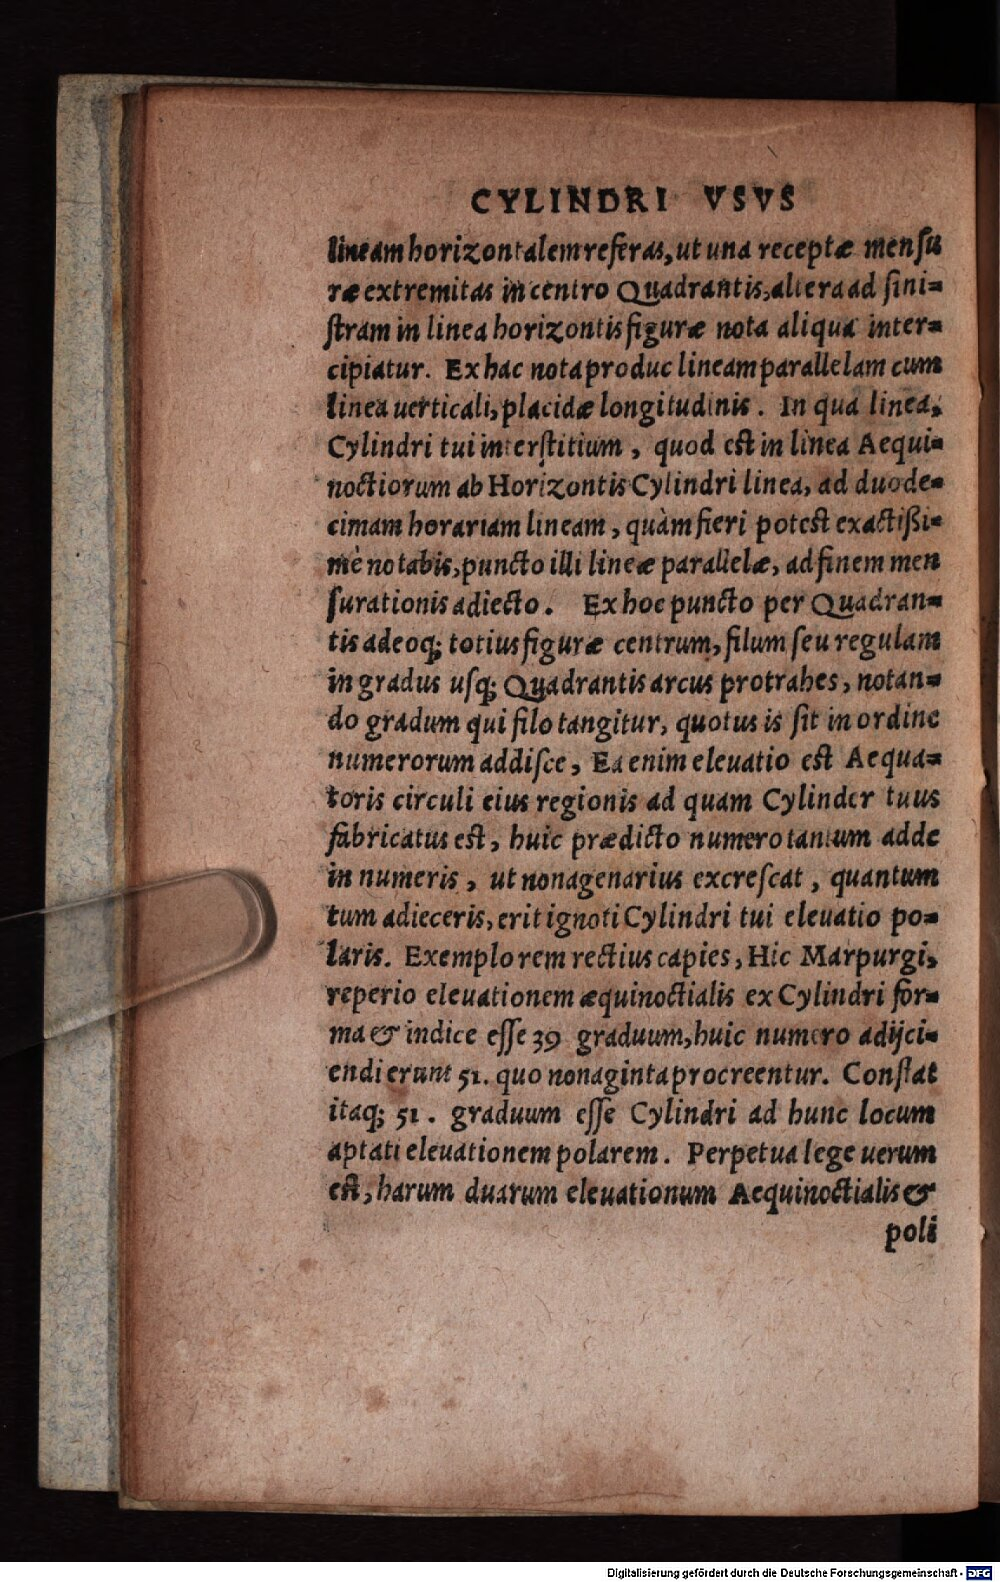 CYLINDRI VSVS
lineam horizontalem referas, ut una receptæ mensu
ræ extremitas in centro Quadrantis, altera ad sini=
stram in linea horizontis figuræ nota aliqua inter=
cipiatur. Ex hac nota produc lineam parallelam cum
linea uerticali, placidæ longitudinis. In qua linea,
Cylindri tui interstitium, quod est in linea Aequi=
noctiorum ab Horizontis Cylindri linea, ad duode=
cimam horariam lineam, quàm fieri potest exactißi=
mè notabis, puncto illi lineæ parallelæ, ad finem men
surationis adiecto. Ex hoc puncto per Quadran=
tis adeoq; totius figuræ centrum, filum seu regulam
in gradus usq; Quadrantis arcus protrahes, notan=
do gradum qui filo tangitur, quotus is sit in ordine
numerorum addisce, Ea enim eleuatio est Aequa=
toris circuli eius regionis ad quam Cylinder tuus
fabricatus est, huic prædicto numero tantum adde
in numeris, ut nonagenarius excrescat, quantum
tum adieceris, erit ignoti Cylindri tui eleuatio po=
laris. Exemplo rem rectius capies, Hic Marpurgi,
reperio eleuationem æquinoctialis ex Cylindri for=
ma & indice esse 39 graduum, huic numero adijci=
endi erunt 51. quo nonaginta procreentur. Constat
itaq; 51. graduum esse Cylindri ad hunc locum
aptati eleuationem polarem. Perpetua lege uerum
est, harum duarum eleuationum Aequinoctialis &
poli
Digitalisierung gefördert durch die Deutsche Forschungsgemeinschaft - DFG